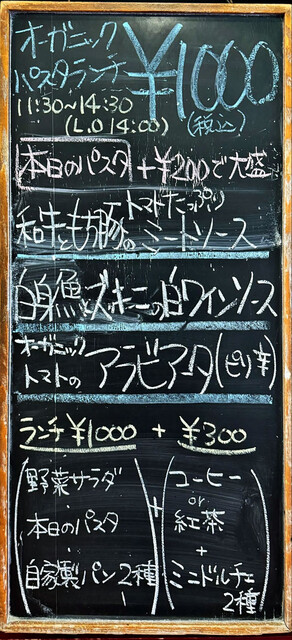 オーガニック
パスタランチ ¥1000
11:30~14:30
(L.O 14:00) (税込)
本日のパスタ +¥200で大盛
トマトたっぷり
和味ともち豚のミートソース
白身魚とズッキーニの白ワインソース
オーガニック
トマトの アラビアータ(ピリ辛)
ランチ ¥1000 + ¥300
野菜サラダ
・
本日のパスタ
・
自家製パン2種
+
コーヒー
or
紅茶
+
ミニドルチェ
2種